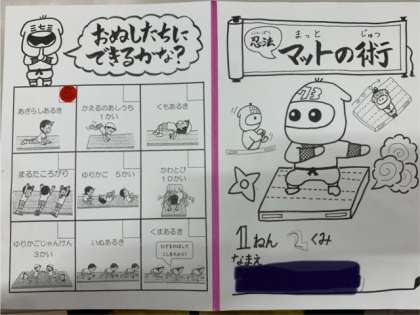 ミセミ
おぬしたちに
できるかな?
あざらしあるき
かえるのあしうち
1かい
くもあるき
まるたころがり
ゆりかご 5かい
かわとび
10かい
ゆりかごじゃんけん
3かい
いぬあるき
くまあるき
にんぽう
忍法
まっと じゅつ
マットの術
1ねん 2くみ
なまえ